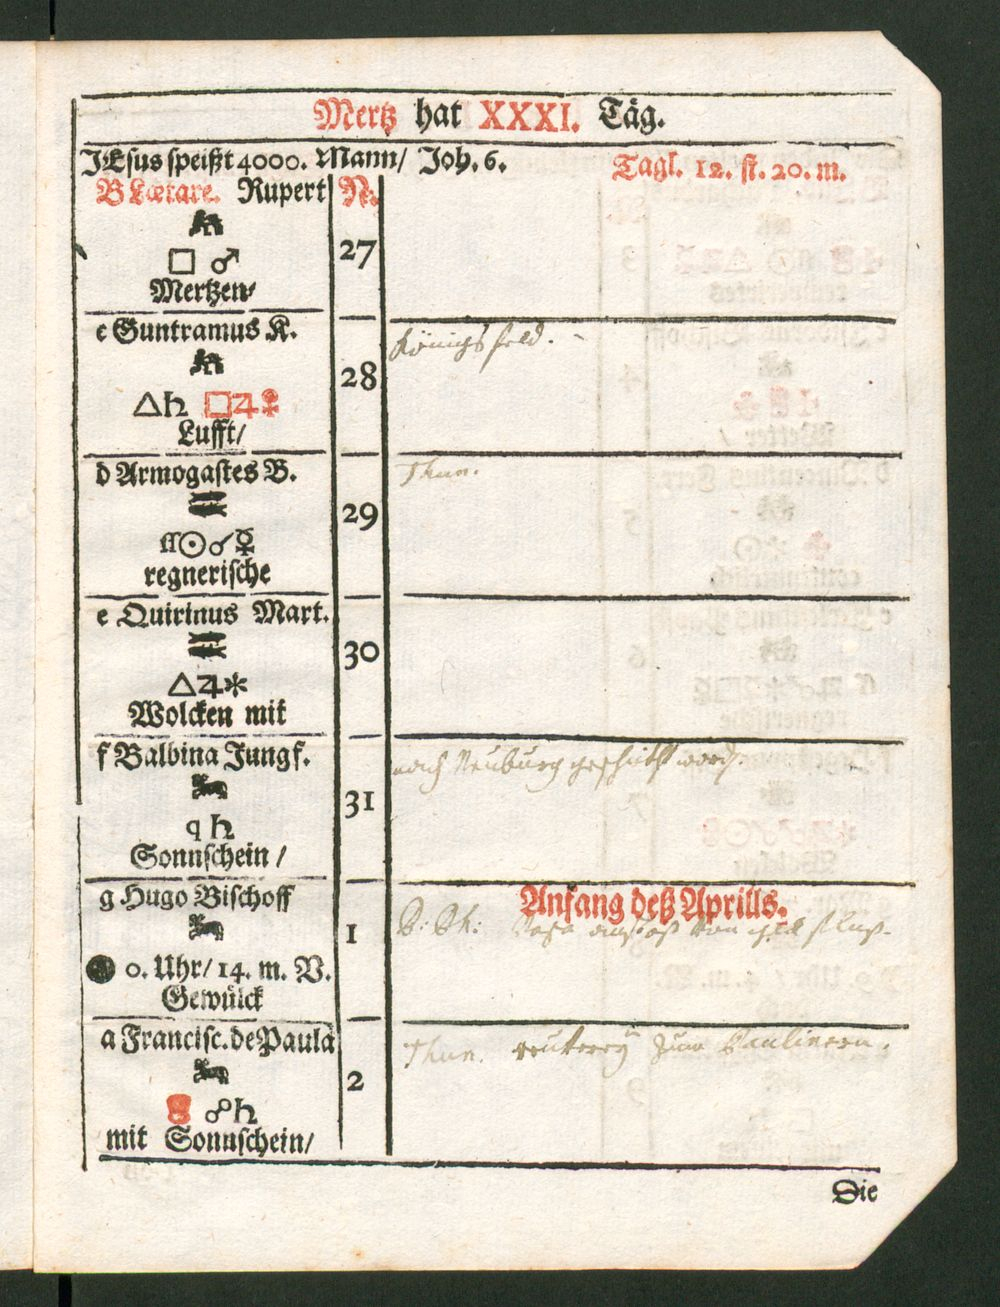 Mertz hat XXXI. Täg.
JEsus speißt 4000. Mann/ Joh. 6.
Tagl. 12. st. 20. m.
B Lætare. Rupert
N.
□ ♂
27
Mertzen/
c Guntramus K.
Königsfeld.
28
△♄ □♃☿
Lufft/
d Armogastes B.
Thun.
29
☊☉☌☿
regnerische
e Quirinus Mart.
30
△♃✱
Wolcken mit
f Balbina Jungf.
nach Neuburg geschickt word.
31
q ♄
Sonnschein /
g Hugo Bischoff
Anfang deß Aprills.
1
0. Uhr/ 14. m. V.
Gewülck
a Francisc. de Paula
Thun. zum Paulinern.
2
☍♄
mit Sonnschein/
Die